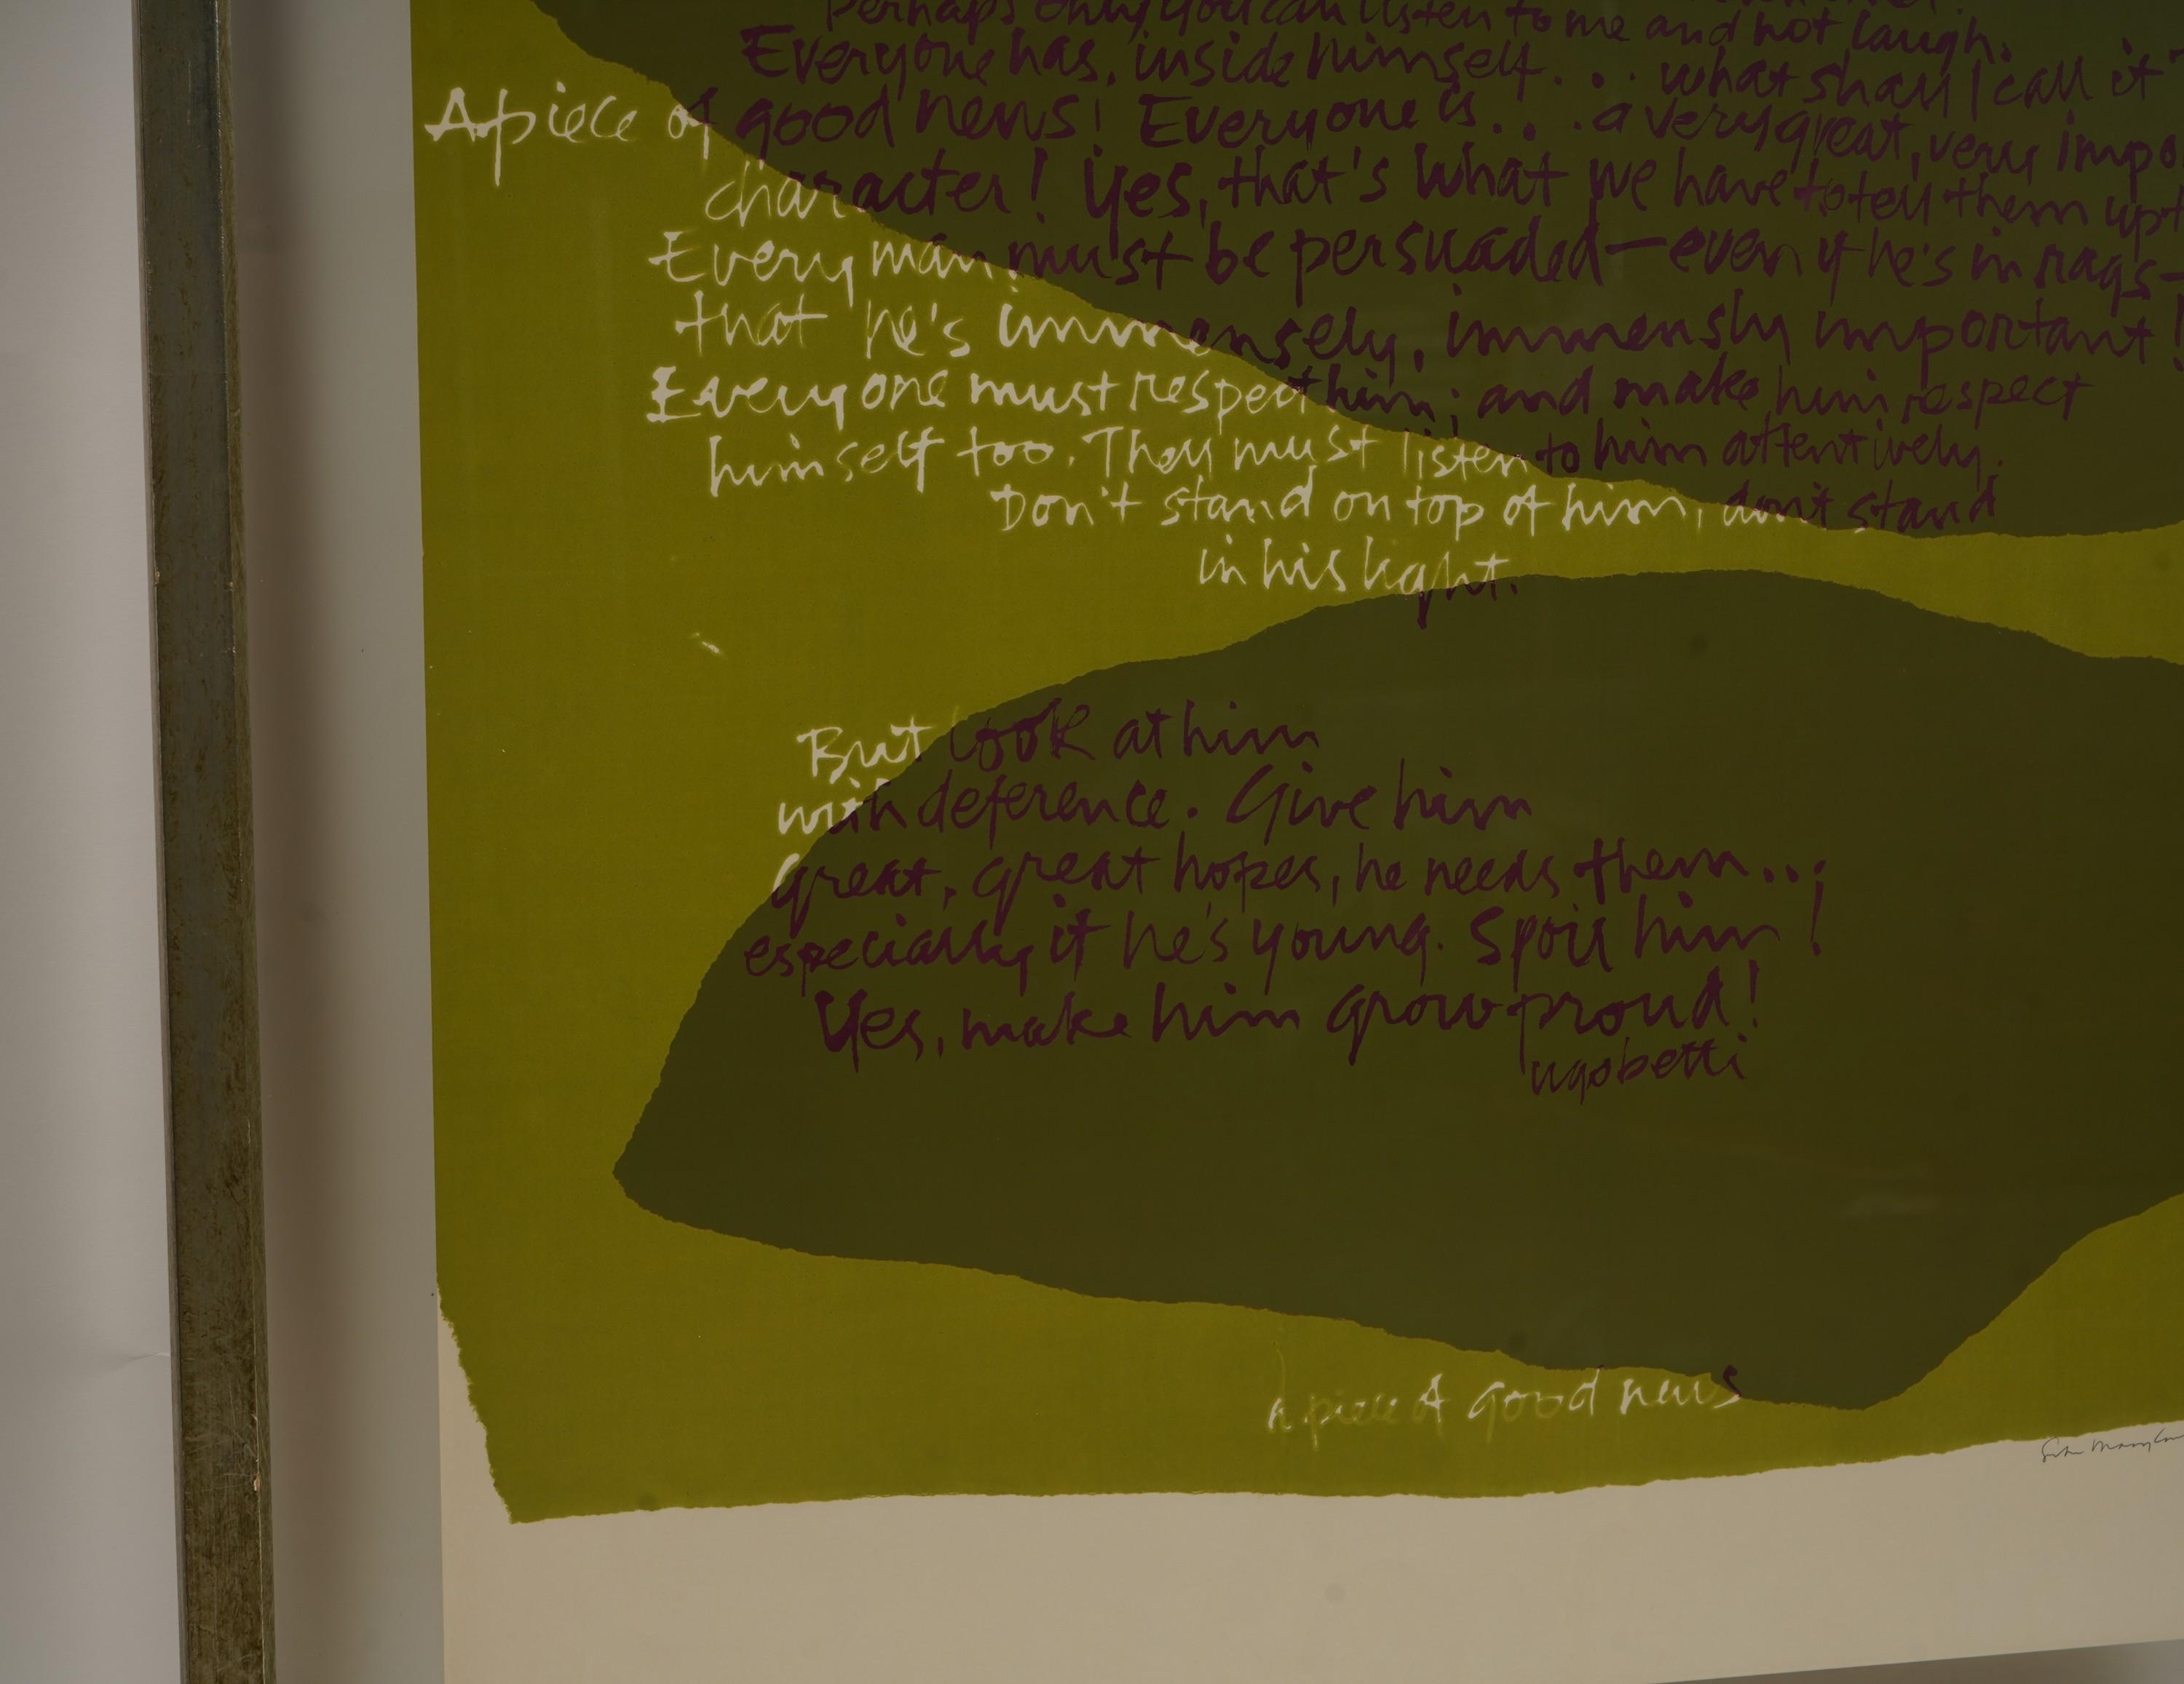 Perhaps only you can listen to me and not laugh.
Everyone has, inside himself... what shall I call it
A piece of good news! Everyone is... a very great, very impo
character! Yes, that's what we have to tell them up t
Every man must be persuaded—even if he's in rags—
that he's immensely, immensly important!
Everyone must respect him; and make him respect
himself too. They must listen to him attentively.
Don't stand on top of him, don't stand
in his light.
But look at him
with deference. Give him
great, great hopes, he needs them...
especially if he's young. Spoil him!
Yes, make him grow proud!
ugo betti
a piece of good news
Sister Mary Cor